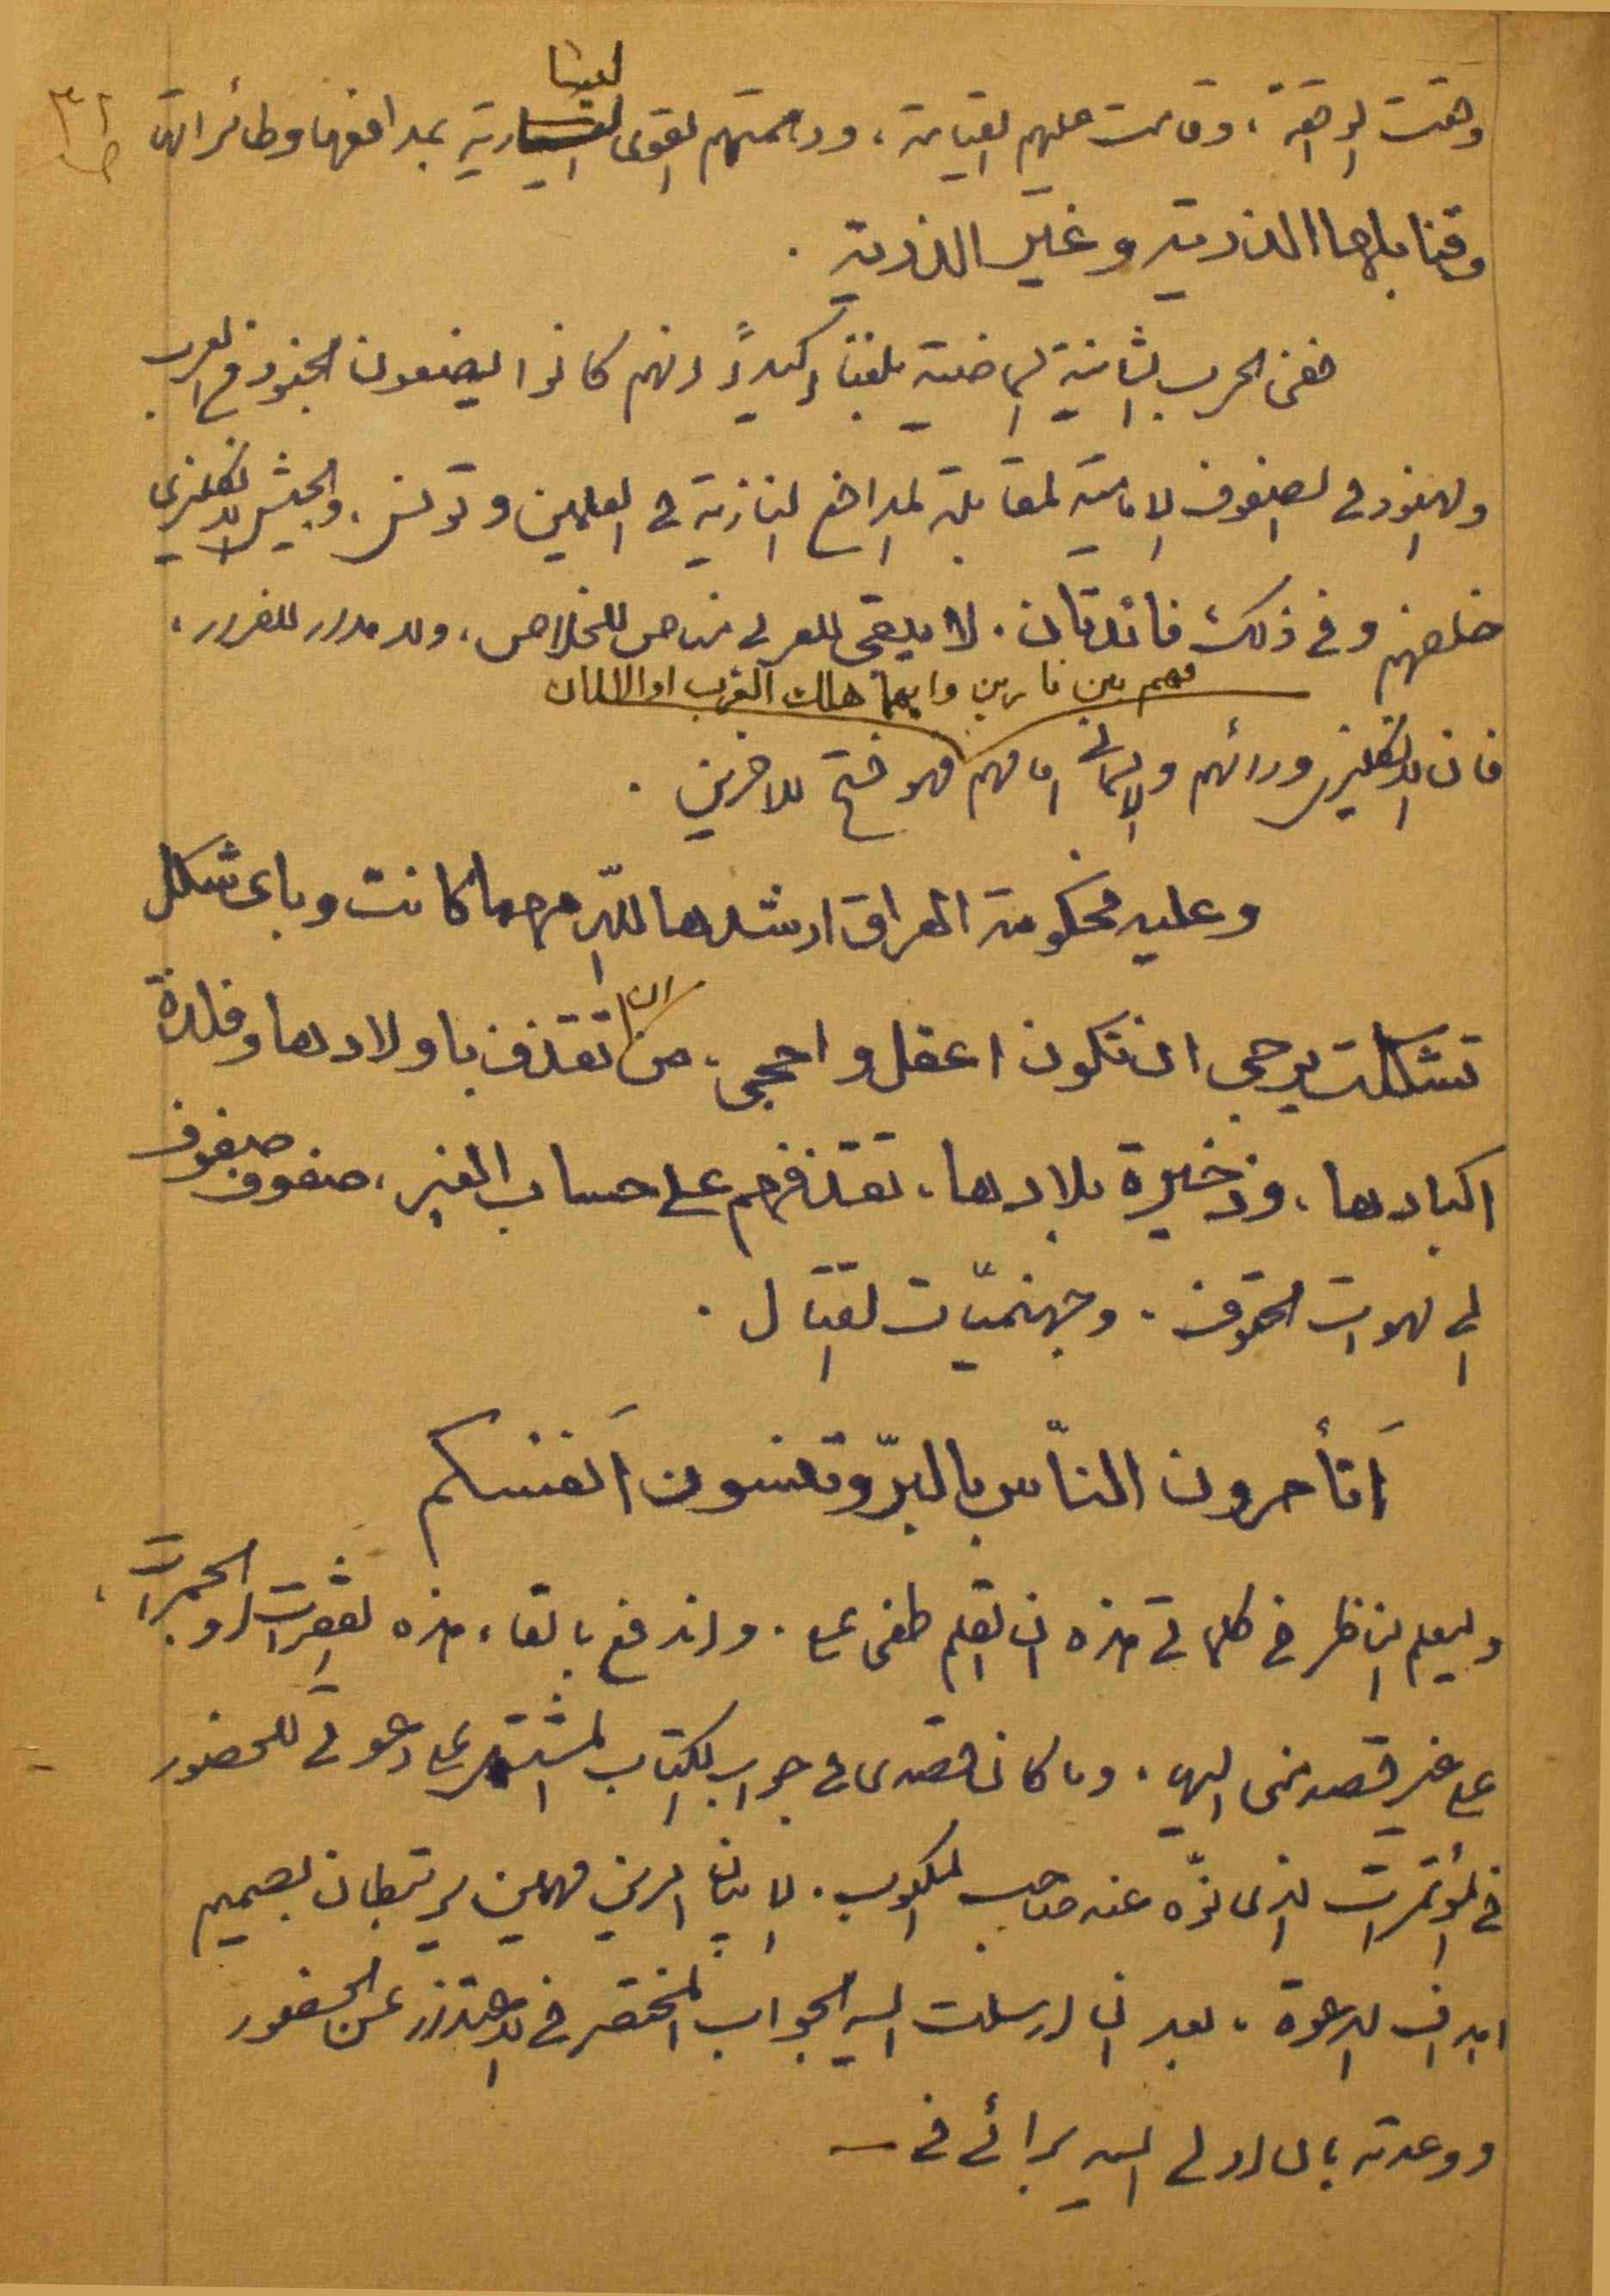 ٣٢
وحقت الحاقة، وقامت عليهم القيامة، ودهمتهم القوى اليسارية بمدافعها وطائراتها
وقنابلها الذرية وغير الذرية .
ففى الحرب الثانية الماضية بلغنا اكيداً انهم كانوا يضعون الجنود من العرب
والهنود فى الصفوف الامامية لمقابلة المدافع النازية فى العلمين وتونس، والجيش الانكليزى
خلفهم وفى ذلك فائدتان. لا يبقى للعربى مناص للخلاص، ولا مدار للفرار،
فهم بين نارين وايهما هلك العرب او الالمان
فان الانكليز ورائهم والالمانى امامهم فهو فتح للاخرين .
وعليه فحكومة العراق ارشدها اللّه مهما كانت وباى شكل
تشكلت يرجى ان تكون اعقل واحجى، من ان تقذف باولادها وفلذة
اكبادها، وذخيرة بلادها، تقذفهم على حساب الغير، صفوف صفوف
الى لهوات الحتوف. وجهنميّات القتال .
اَتأمرون النّاس بالبرّ وتنسون اَنفسكم
وليعلم الناظر فى كلماتى هذه ان القلم طغى علي. واندفع بالقاء هذه الفقرات او الجمرات،
على غير قصد منى اليه. وما كان قصدى فى جواب الكتاب المشتمل على دعوتى للحضور
فى المؤتمرات الذى نوّه عنه صاحب المكتوب. الا بيان امرين مهمين يرتبطان بصميم
اهداف الدعوة، بعد ان ارسلت اليه الجواب المختصر فى الاعتذار عن الحضور
ووعدته بان ادلى اليه برائى فى —